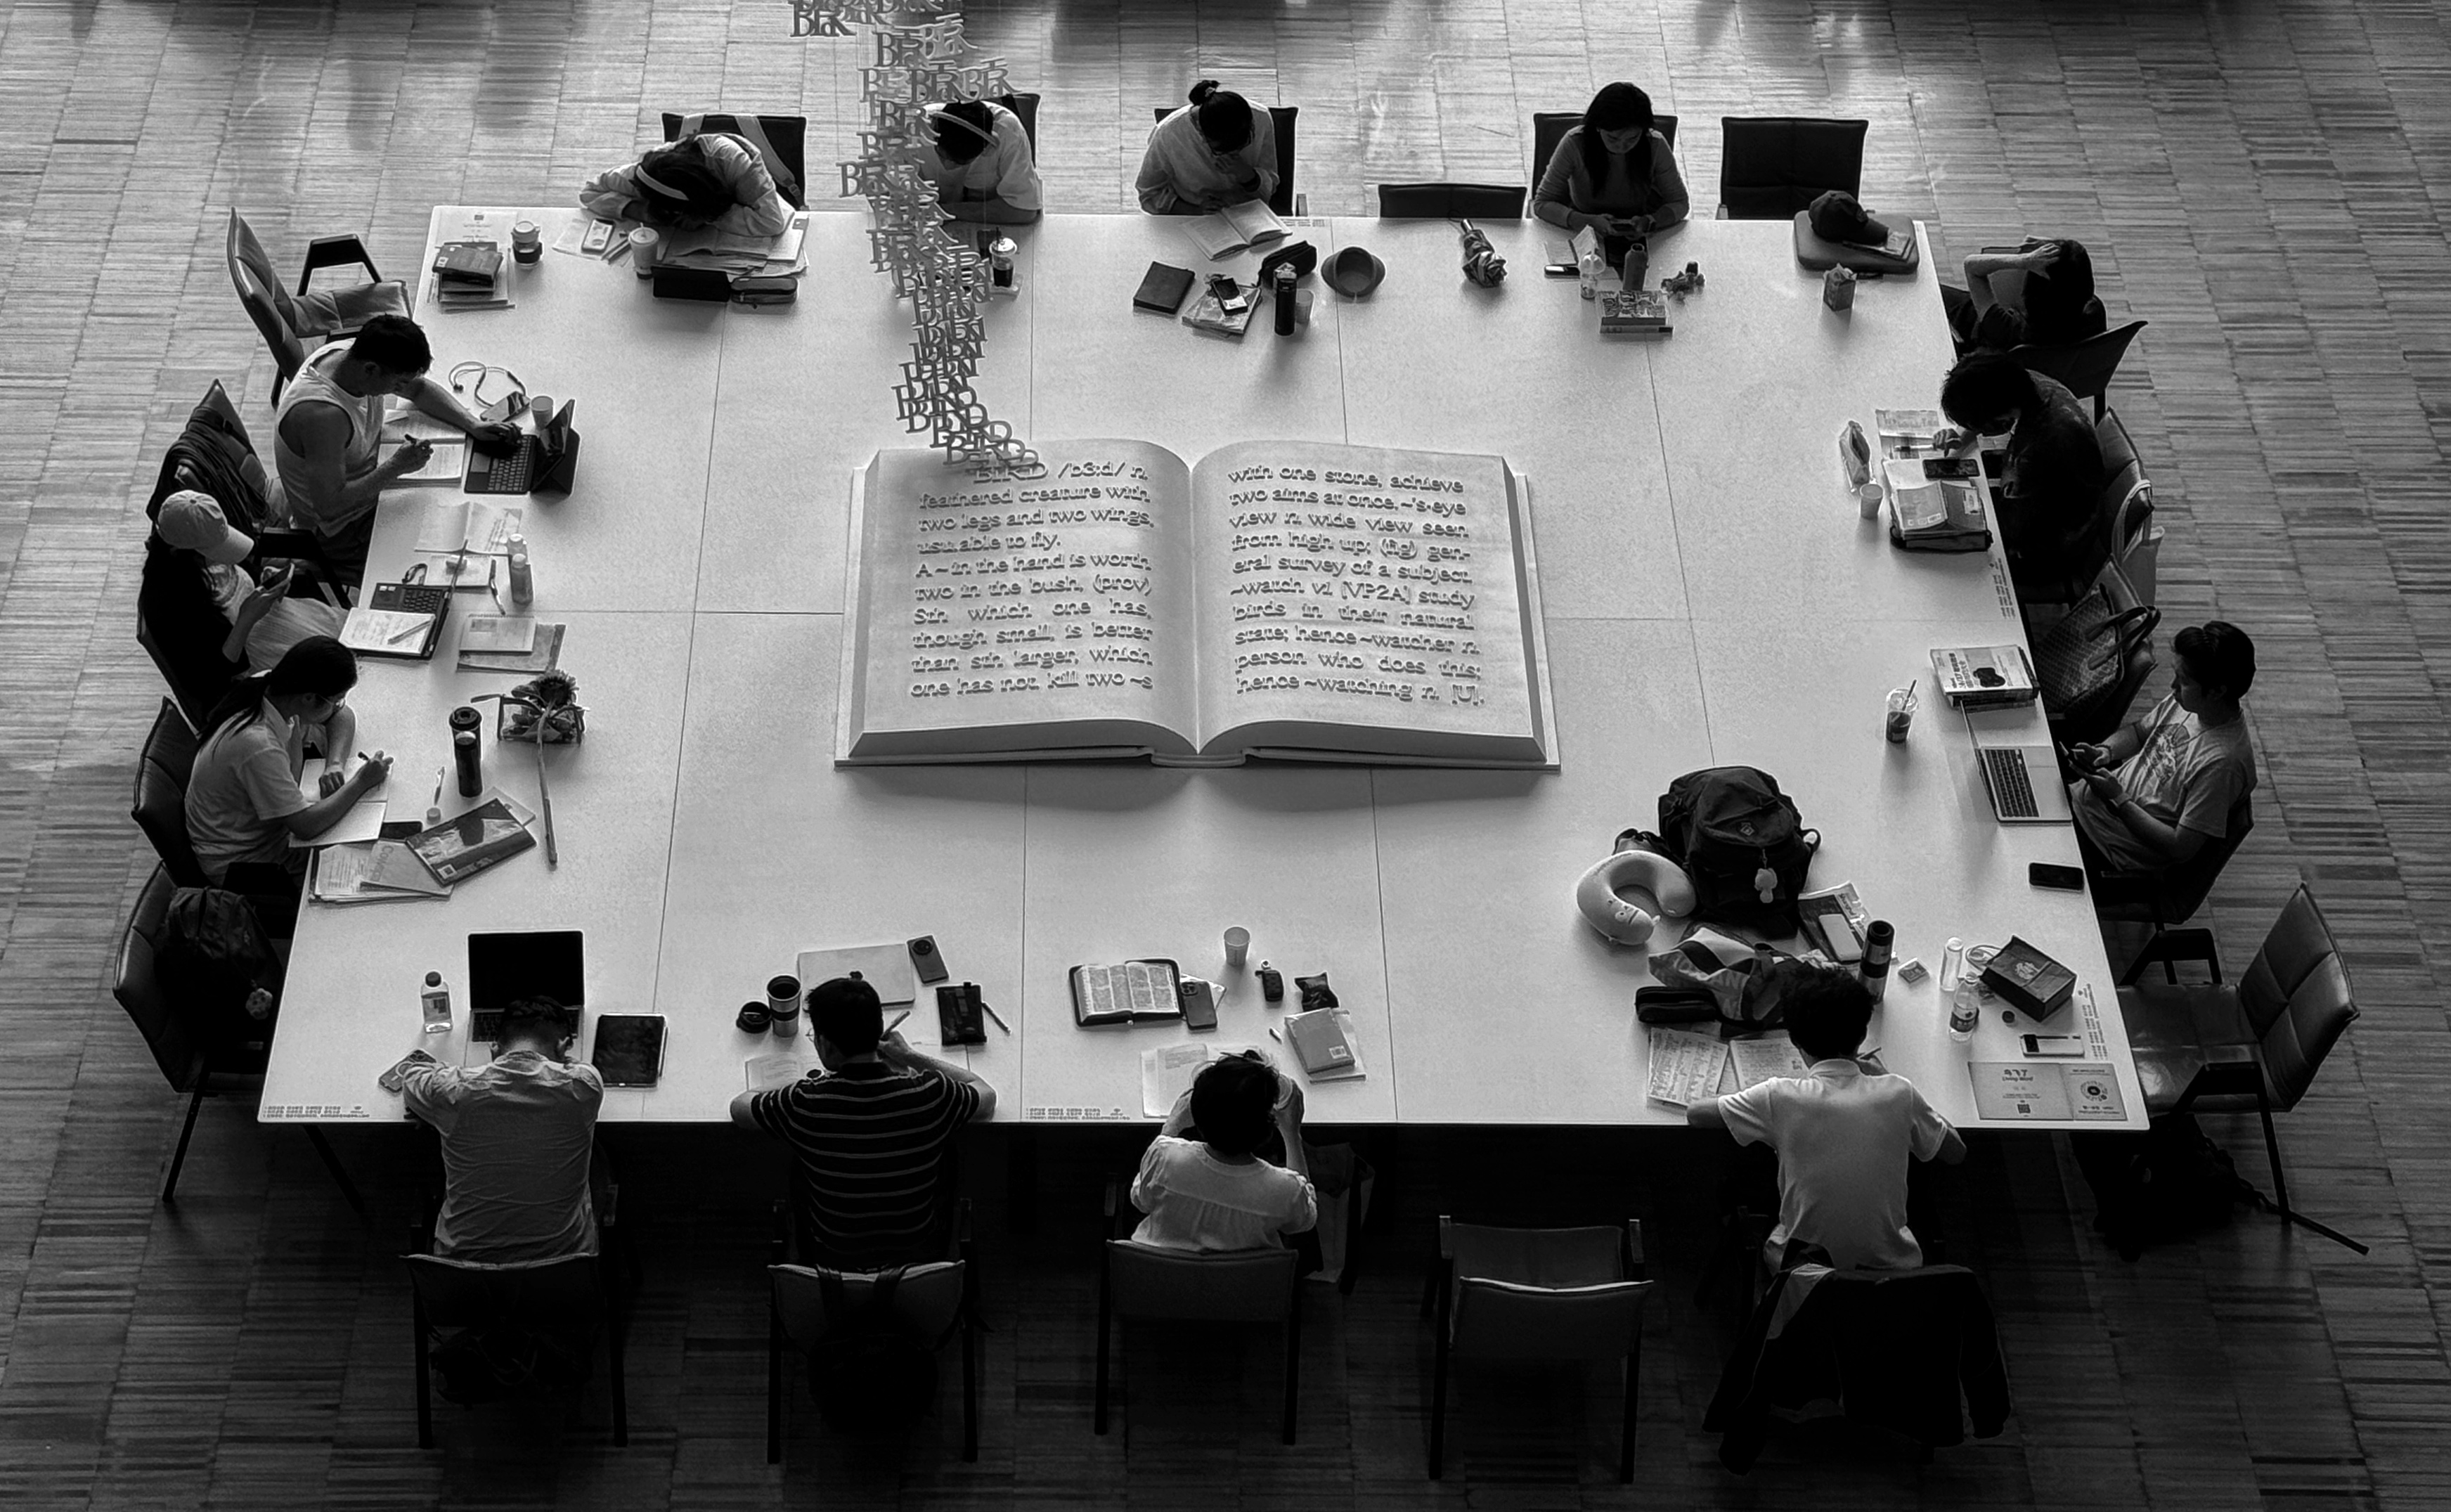 BIRD /bɜ:d/ n.
feathered creature with
two legs and two wings,
usu. able to fly.
A ~ in the hand is worth
two in the bush, (prov)
Sth which one has,
though small, is better
than sth larger, which
one has not. kill two ~s
with one stone, achieve
two aims at once. ~'s-eye
view n. wide view seen
from high up; (fig) gen-
eral survey of a subject.
~watch vi [VP2A] study
birds in their natural
state; hence ~watcher n.
person who does this;
hence ~watching n. [U].